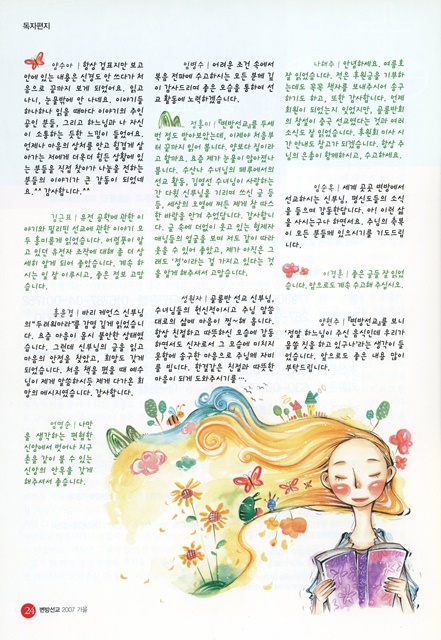 독자편지
양수아 | 항상 겉표지만 보고
안에 있는 내용은 신경도 안 쓰다가 처
음으로 끝까지 보게 되었어요. 읽고
나니, 눈물밖에 안 나네요. 이야기들
하나하나 읽을 때마다 이야기의 주인
공인 분들, 그리고 하느님과 나 자신
이 소통하는 듯한 느낌이 들었어요.
언제나 마음의 상처를 안고 힘겹게 살
아가는 저에게 더욱더 힘든 상황에 있
는 분들을 직접 찾아가 나눔을 전하는
분들의 이야기가 큰 감동이 되었네
요.^^ 감사합니다.^^
김근표 | 유전 공학에 관한 이
야기와 필리핀 선교에 관한 이야기 모
두 흥미롭게 읽었습니다. 어렴풋이 알
고 있던 유전자 조작에 대해 좀 더 상
세히 알게 되어 좋았습니다. 계속 하
시는 일 잘 이루시고, 좋은 정보 고맙
습니다.
홍윤경 | 빠리 케빈스 신부님
의 "두려워마라"를 감명 깊게 읽었습니
다. 요즘 마음이 몹시 불안한 상태였
습니다. 그런데 신부님의 글을 읽고
마음의 안정을 찾았고, 희망도 갖게
되었습니다. 처음 책을 폈을 때 예수
님이 제게 말씀하시듯 제게 다가온 희
망의 메시지였습니다. 감사합니다.
엄영순 | 나만
을 생각하는 편협한
신앙에서 벗어나 지구
촌을 같이 볼 수 있는
신앙의 안목을 갖게
해주셔서 좋습니다.
임병수 | 어려운 조건 속에서
복음 전파에 수고하시는 모든 분께 깊
이 감사드리며 좋은 모습을 통하여 선
교 활동에 노력하겠습니다.
정홍미 | 『변방선교』를 두세
번 정도 받아보았는데, 이제야 처음부
터 끝까지 읽어 봅니다. 양보다 질이라
고 할까요. 요즘 제가 눈물이 많아졌나
봅니다. 수산나 수녀님의 페루에서의
선교 활동, 김영선 수녀님이 사랑하는
간 다윗 신부님을 기리며 쓰신 글 등
등, 세상의 오염에 찌든 제게 참 따스
한 바람을 안겨 주었답니다. 감사합니
다. 글 속에 더없이 웃고 있는 형제자
매님들의 얼굴을 보며 저도 같이 따라
웃을 수 있어 좋았고, 제가 아직은 그
래도 '정'이라는 걸 가지고 있다는 것
을 알게 해주셔서 고맙습니다.
석원자 | 골롬반 선교 신부님,
수녀님들의 헌신적이시고 주님 말씀
대로의 삶에 마음이 찡~해 옵니다.
항상 친절하고 따뜻하신 모습에 감동
하면서도 신자로서 그 모습에 미치지
못함에 송구한 마음으로 주님께 자비
를 빕니다. 한결같은 친절과 따뜻한
마음이 되게 도와주시기를….
나해수 | 안녕하세요. 여름호
잘 읽었습니다. 적은 후원금을 기부하
는데도 꼭꼭 책자를 보내주시어 송구
하기도 하고, 또한 감사합니다. 언제
회원이 되었는지 잊었지만, 골롬반회
의 창설이 중국 선교였다는 것과 여러
소식도 잘 읽었습니다. 후원회 미사 시
간 안내도 찾고가 되겠습니다. 항상 주
님의 은총이 함께하시고, 수고하세요.
임승옥 | 세계 곳곳 변방에서
선교하시는 신부님, 평신도들의 소식
을 들으며 감동한답니다. 아! 이런 삶
을 사시는구나 하면서요. 주님의 축복
이 모든 분들께 있으시기를 기도드립
니다.
이경훈 | 좋은 글들 잘 읽었
습니다. 앞으로도 계속 수고해 주십시오.
양현수 | 『변방선교』를 보니
'정말 하느님이 주신 몸신인데 우리가
몹쓸 짓을 하고 있구나'라는 생각이 들
었습니다. 앞으로도 좋은 내용 많이
부탁드립니다.
24 변방선교 2007 가을